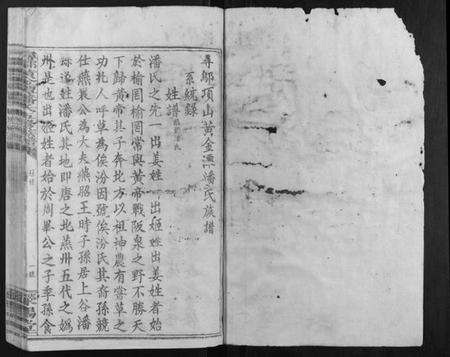 尋鄔項山黃金潭潘氏族譜
系統錄
姓譜
潘氏之先一出姜姓一出姬姓出姜姓者始
於榆罔榆罔當與黃帝戰阪泉之野不勝天
下歸黃帝其子奔北方以祖神農有嘗草之
功北人呼草為俟汾因號俟汾氏其裔孫競
仕燕襄公為大夫燕昭王時子孫居上谷潘
遂姓潘氏其地即唐之北燕州五代之媯
州是也出姬姓者始於周畢公之子季孫食